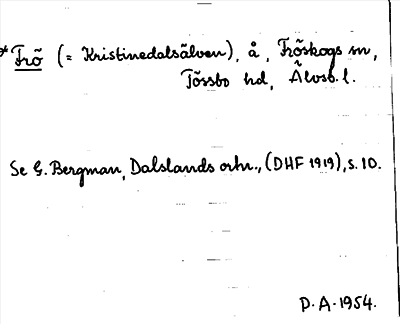 *Frö (= Kristinedalsälven), å, Fröskogs sn,
Tössbo hd, Älvsb. l.
Se G. Bergman, Dalslands ortn., (DHF 1919), s. 10.
D. A. 1954.